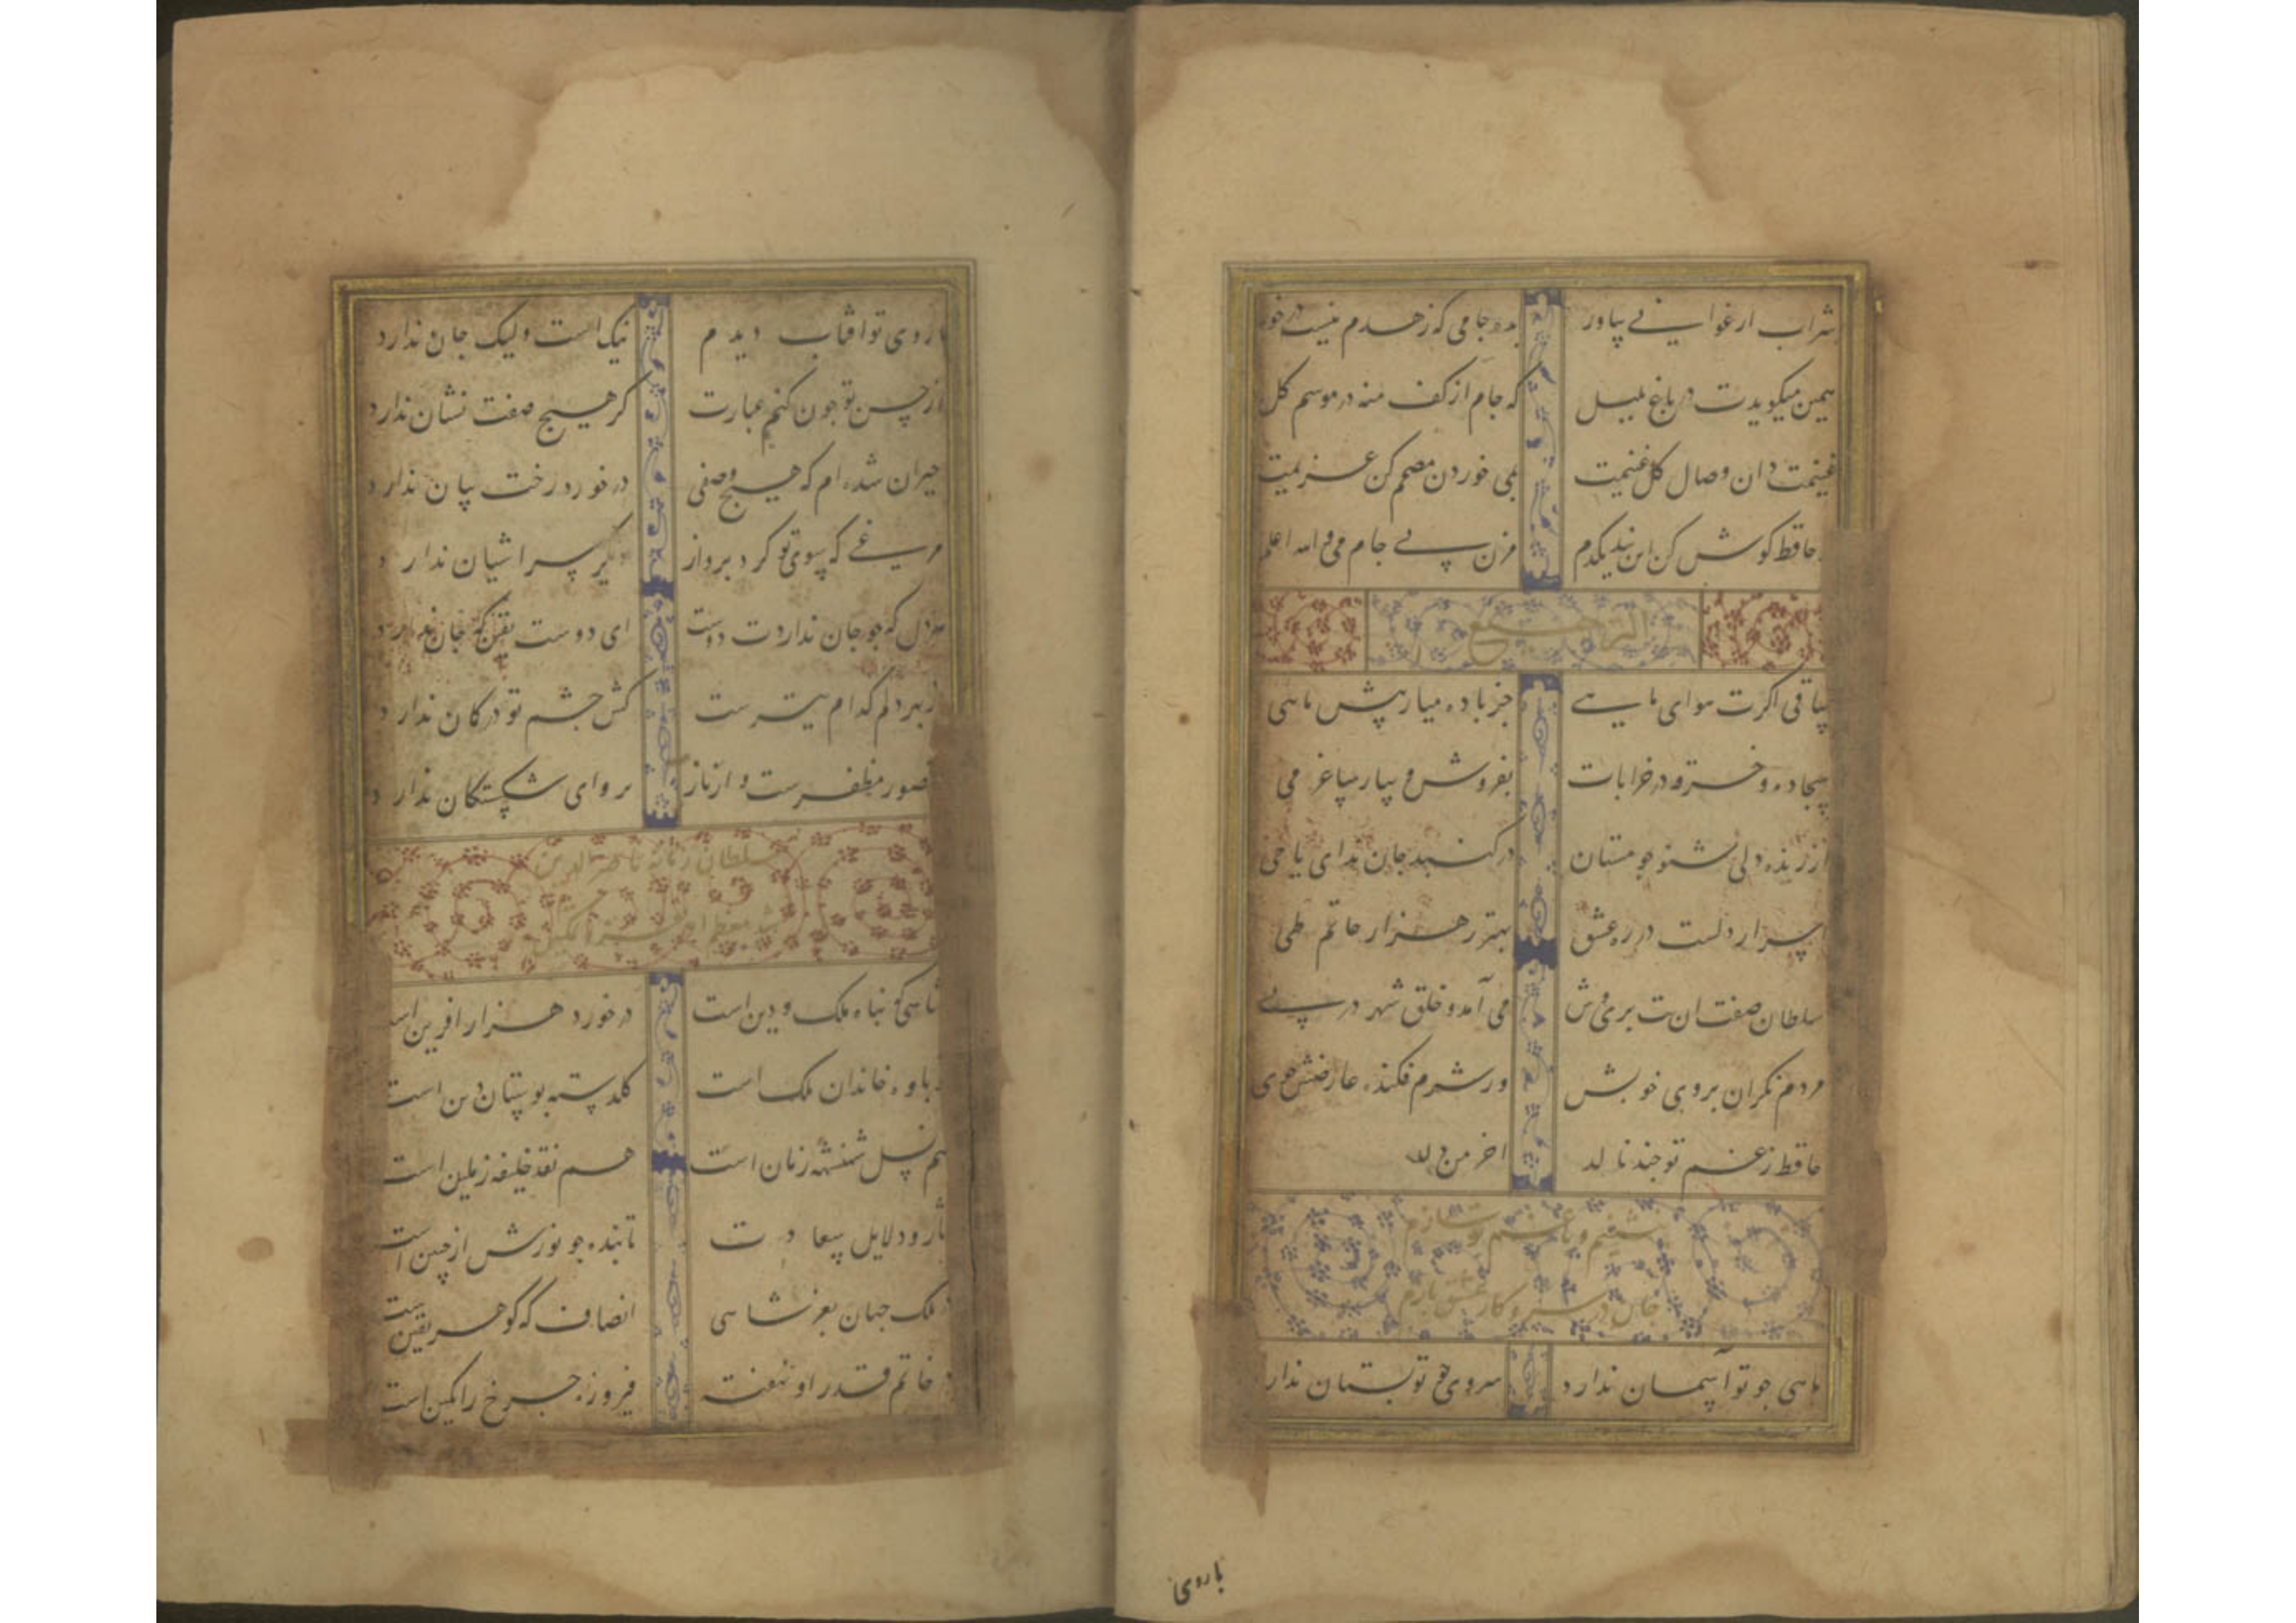 شراب ارغوانی بیاور بده جامی که زهدم نیست در خور
همین میکویدت در باغ بلبل که جام از کف منه در موسم کل
غنیمت دان وصال کل غنیمت بمی خوردن مصمم کن عزیمت
حافظ کوش کن این پند یکدم مزن بی جام می والله اعلم
الترجیع
ساقی اکرت هوای ما هی جز باده میار پیش ما شی
سجاده و خرقه در خرابات بفروش و بیار ساغر می
ار زنده دلی شنو جو مستان در کنبد جان ندای یا حی
اسرار دلست در ره عشق بهتر ز هزار حاتم طی
سلطان صفت ان بت بری وش می آمد و خلق شهر در بی
مردم نکران بروی خوبش وز شرم فکنده عارضش خوی
حافظ ز غم تو جند نالد اخر من دل
بنشینم و با غم تو سازم
جان در سر و کار عشق بازم
ماهی جو تو آسمان ندارد سروی جو تو بستان ندارد
با روی
با روی تو افتاب دیدم نیک است ولیک جان ندارد
از حسن تو جون کنم عبارت کز هیج صفت نشان ندارد
حیران شده ام که هیج وصفی در خورد رخت بیان ندارد
مرغی که بسوی تو کرد برواز دیکر سر اشیان ندارد
هر دل که جو جان نداردت دوست ای دوست یقین که جان ندارد
تیر دلم کدام تیرست کش جشم تو در کمان ندارد
منصور مظفرست و از ناز بروای شکستکان ندارد
سلطان زمانه ناصر الدین
شاهی که بناه ملک و دین است در خورد هزار افرین است
خاندان ملک است کلدسته بوستان دین است
هم نسل شهنشه زمان است هم نقد خلیفه زمین است
دلایل سعادت تابنده جو نورش از جبین است
ملک جهان بعز شاهی انصاف که کوهر یقین است
خاتم قدر او نهفته فیروزه جرخ را نکین است